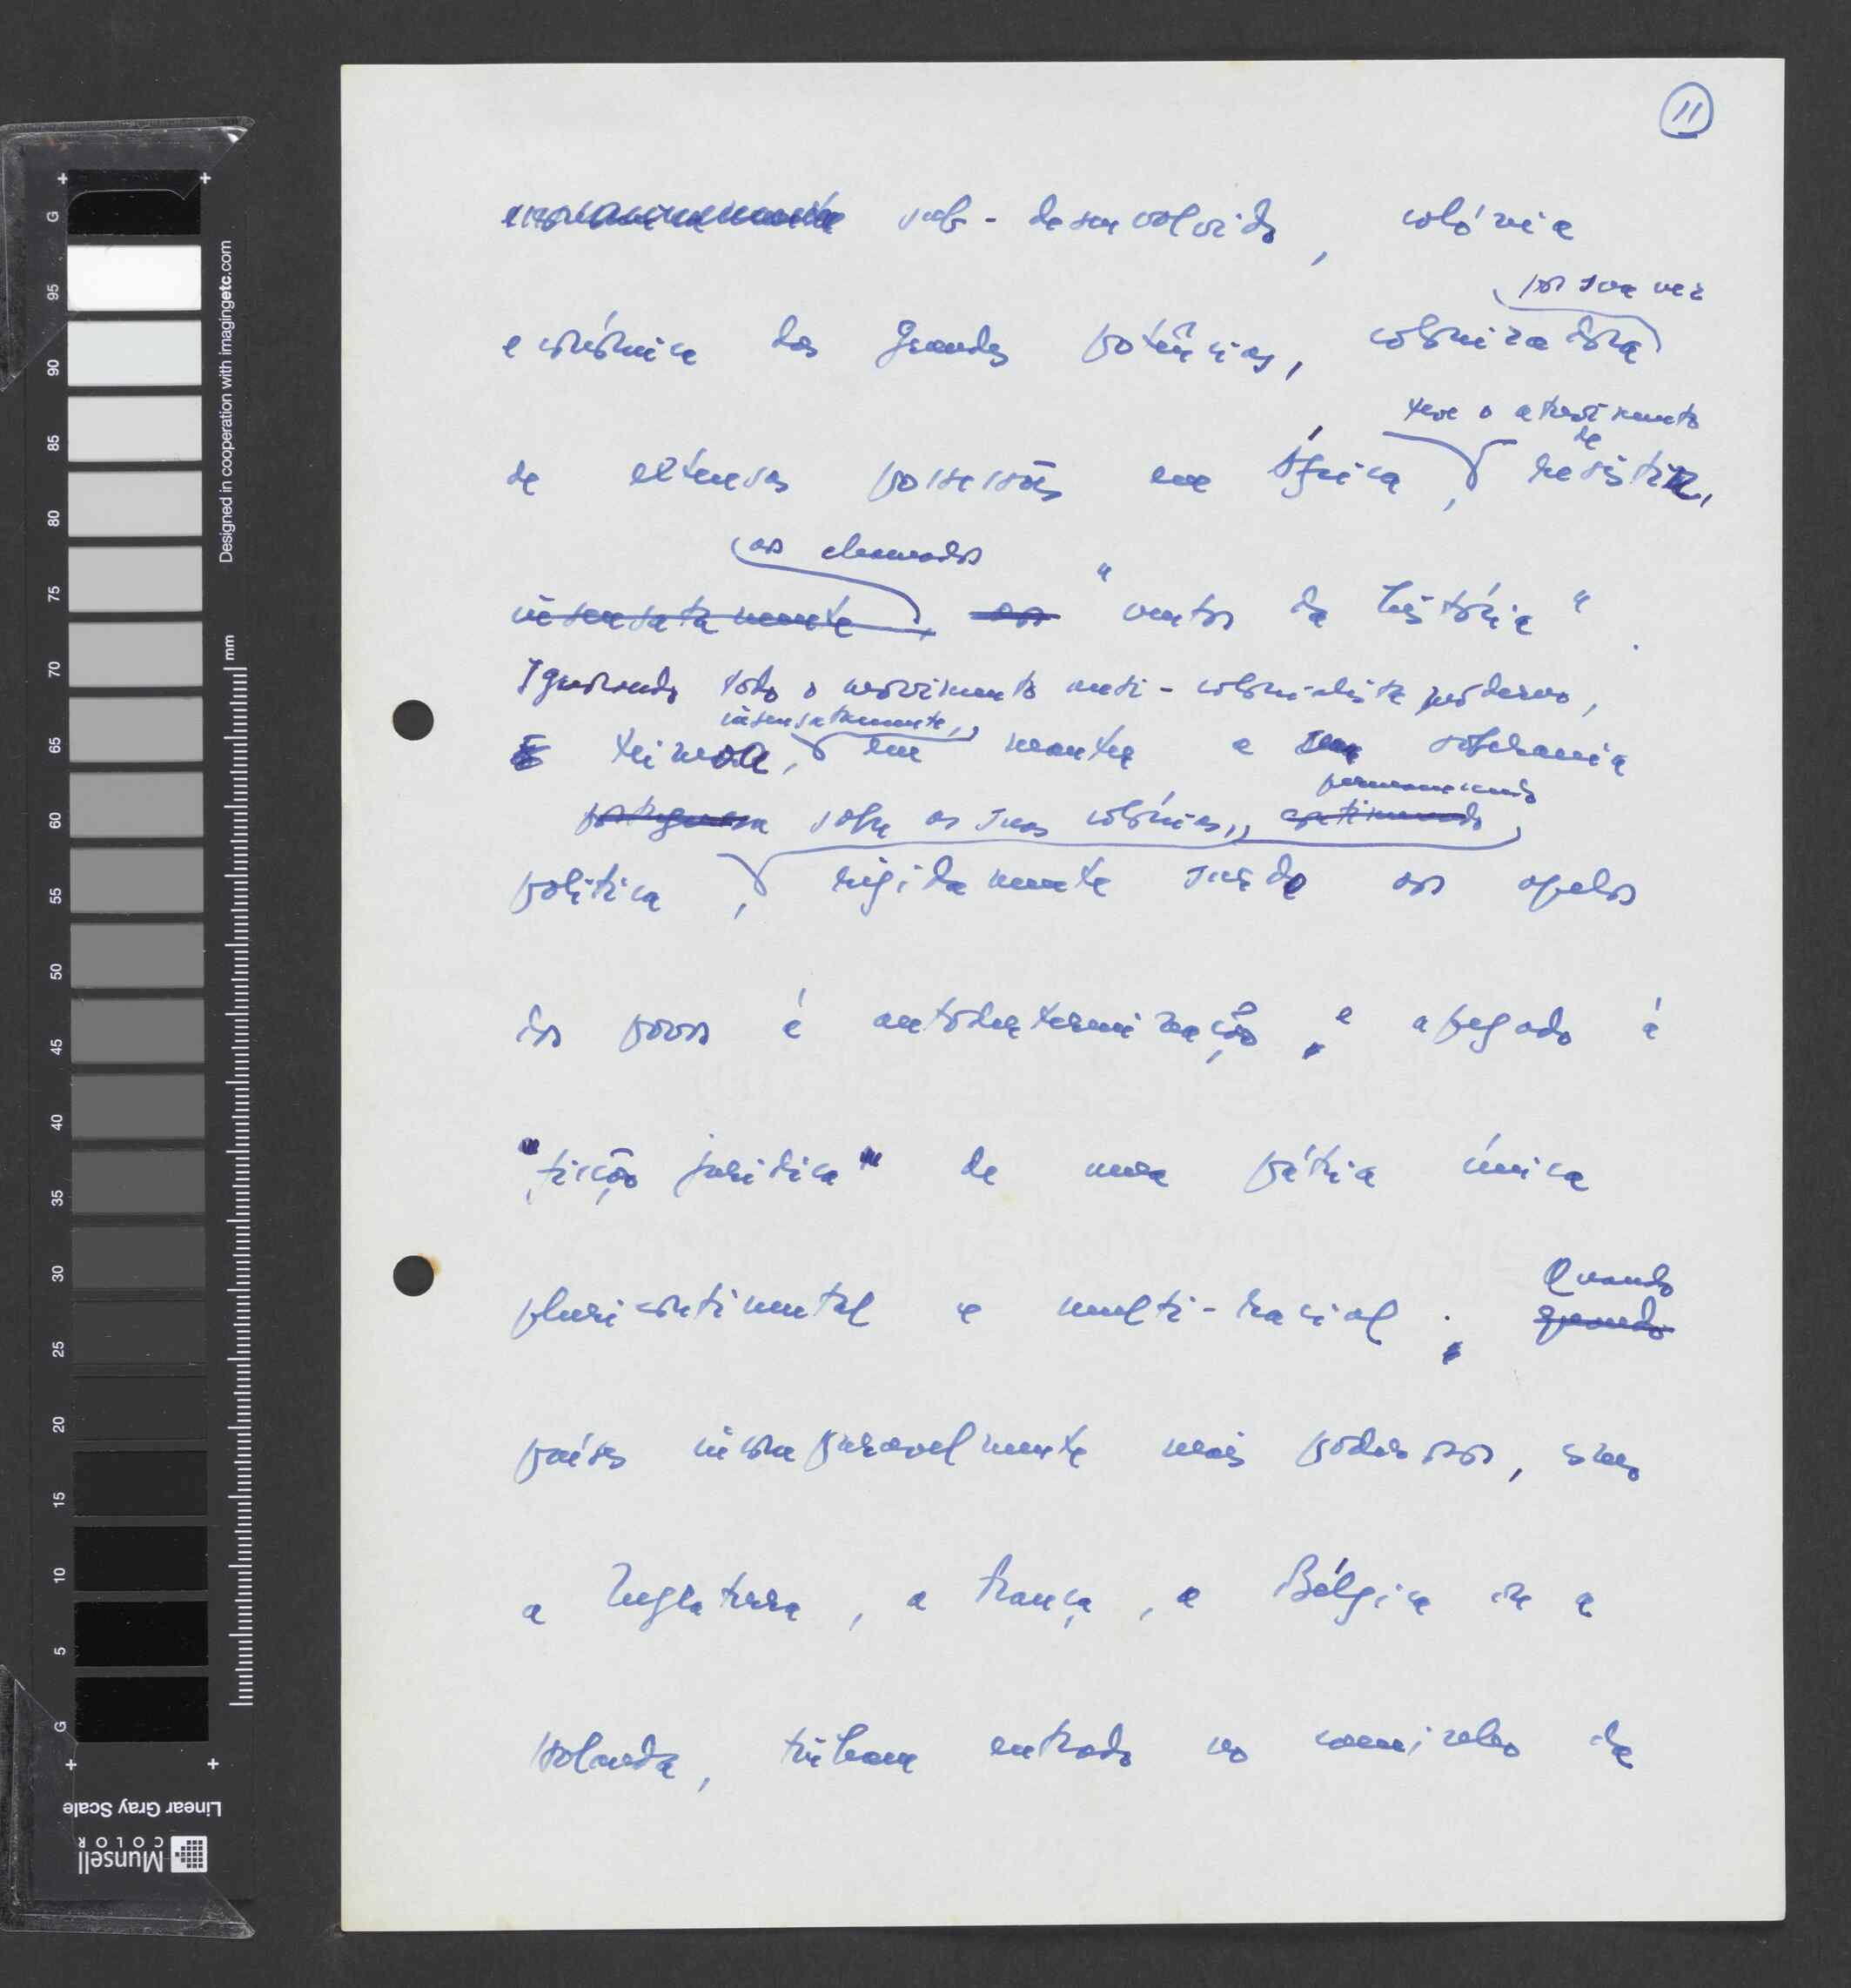 11
sub-desenvolvido, colónia
por sua vez
económica das grandes potências, colonizadora
teve o atrevimento
de
de extensas possessões em África, resistir,
os chamados
insensatamente, os "ventos da história".
Ignorando todo o movimento anti-colonialista moderno,
insensatamente,
E teimou, em manter a sua soberania
permanecendo
portuguesa sobre as suas colónias, continuando
política, rigidamente surdo aos apelos
dos povos à autodeterminação, e apegado à
"ficção jurídica" de uma pátria única
Quando
pluricontinental e multi-racial. quando
países incomparavelmente mais poderosos, como
a Inglaterra, a França, a Bélgica ou a
Holanda, tinham entrado no caminho da
Designed in cooperation with imagingetc.com
mm
G
95
90
85
80
75
70
65
60
55
50
45
40
35
30
25
20
15
10
5
G
Linear Gray Scale
Munsell
COLOR